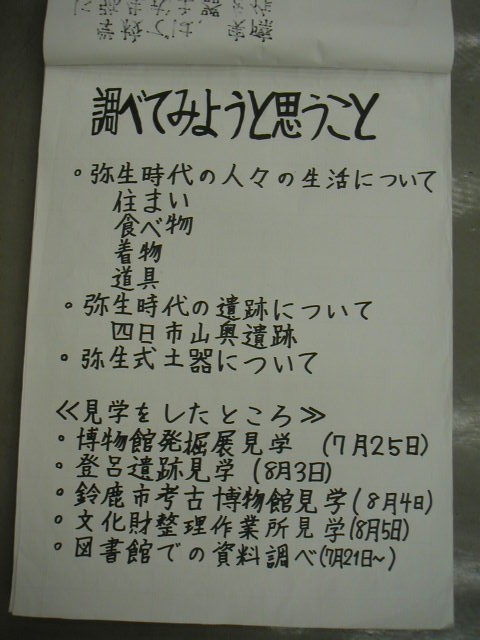 調べてみようと思うこと
・弥生時代の人々の生活について
住まい
食べ物
着物
道具
・弥生時代の遺跡について
四日市山奥遺跡
・弥生式土器について
≪見学をしたところ≫
・博物館発掘展見学 (7月25日)
・登呂遺跡見学 (8月3日)
・鈴鹿市考古博物館見学(8月4日)
・文化財整理作業所見学(8月5日)
・図書館での資料調べ(7月21日~)